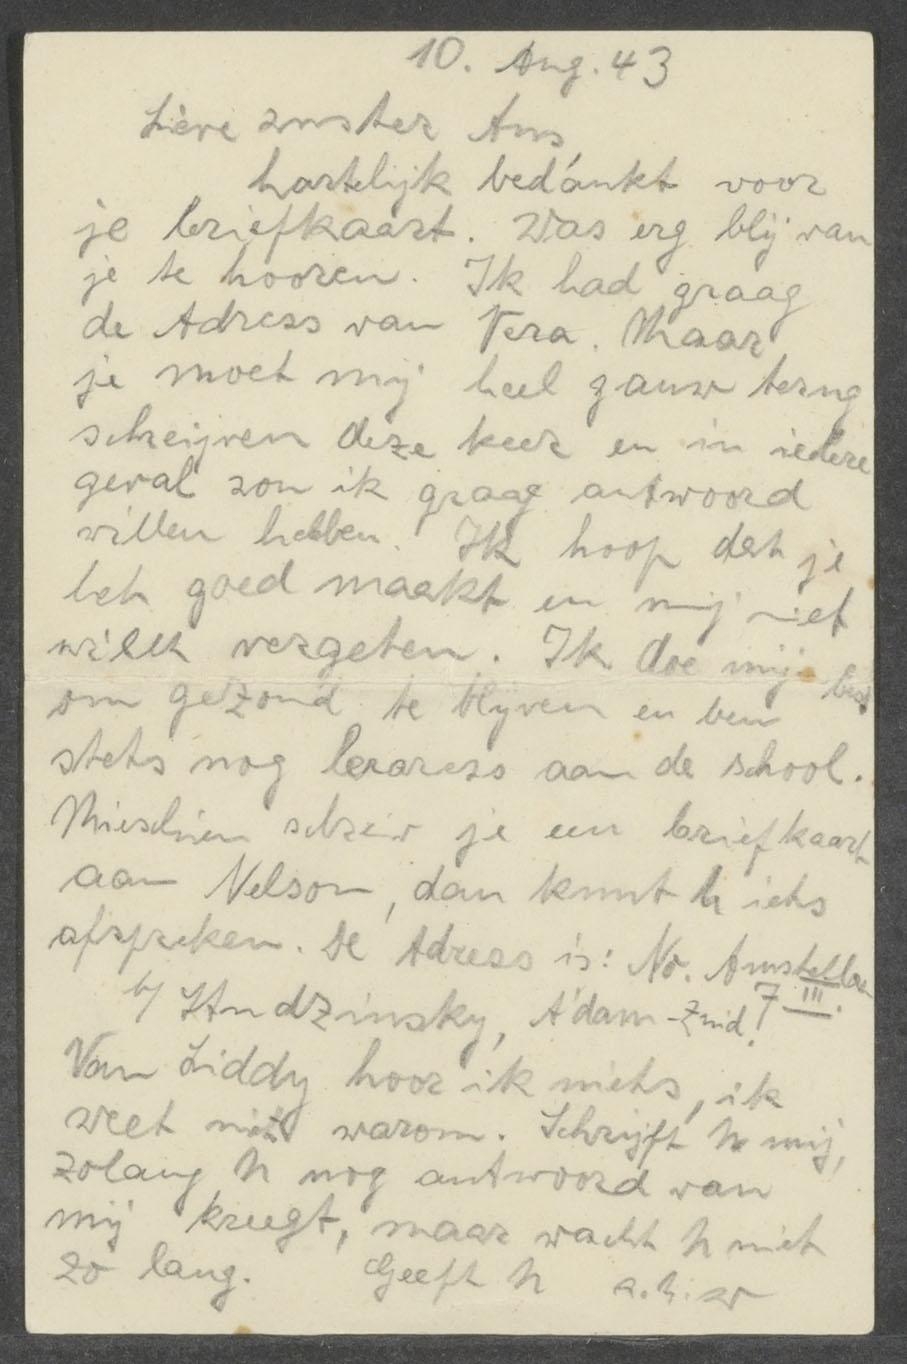 10. Aug. 43
Lieve zuster Ans,
hartelijk bedánkt voor
je briefkaart. Was erg blij van
je te hooren. Ik had graag
de Adress van Vera. Maar
je moet mij heel gauw terug
schreijven deze keer en in iedere
geval zou ik graag antwoord
willen hebben. Ik hoop dat je
het goed maakt en mij niet
willt vergeten. Ik doe mij best
om gezond te blijven en ben
stets nog leraress aan de school.
Mischien schreiv je een briefkaart
aan Nelson, dan kunt U iets
afspreken. De Adress is: No. Amstellaan
b/ Hudzinsky, A'dam-Zuid. 7 III.
Van Liddy hoor ik niets, ik
weet niet warom. Schrijft U mij,
zolang U nog antwoord van
mij kreegt, maar wacht U niet
zo lang. Geeft U